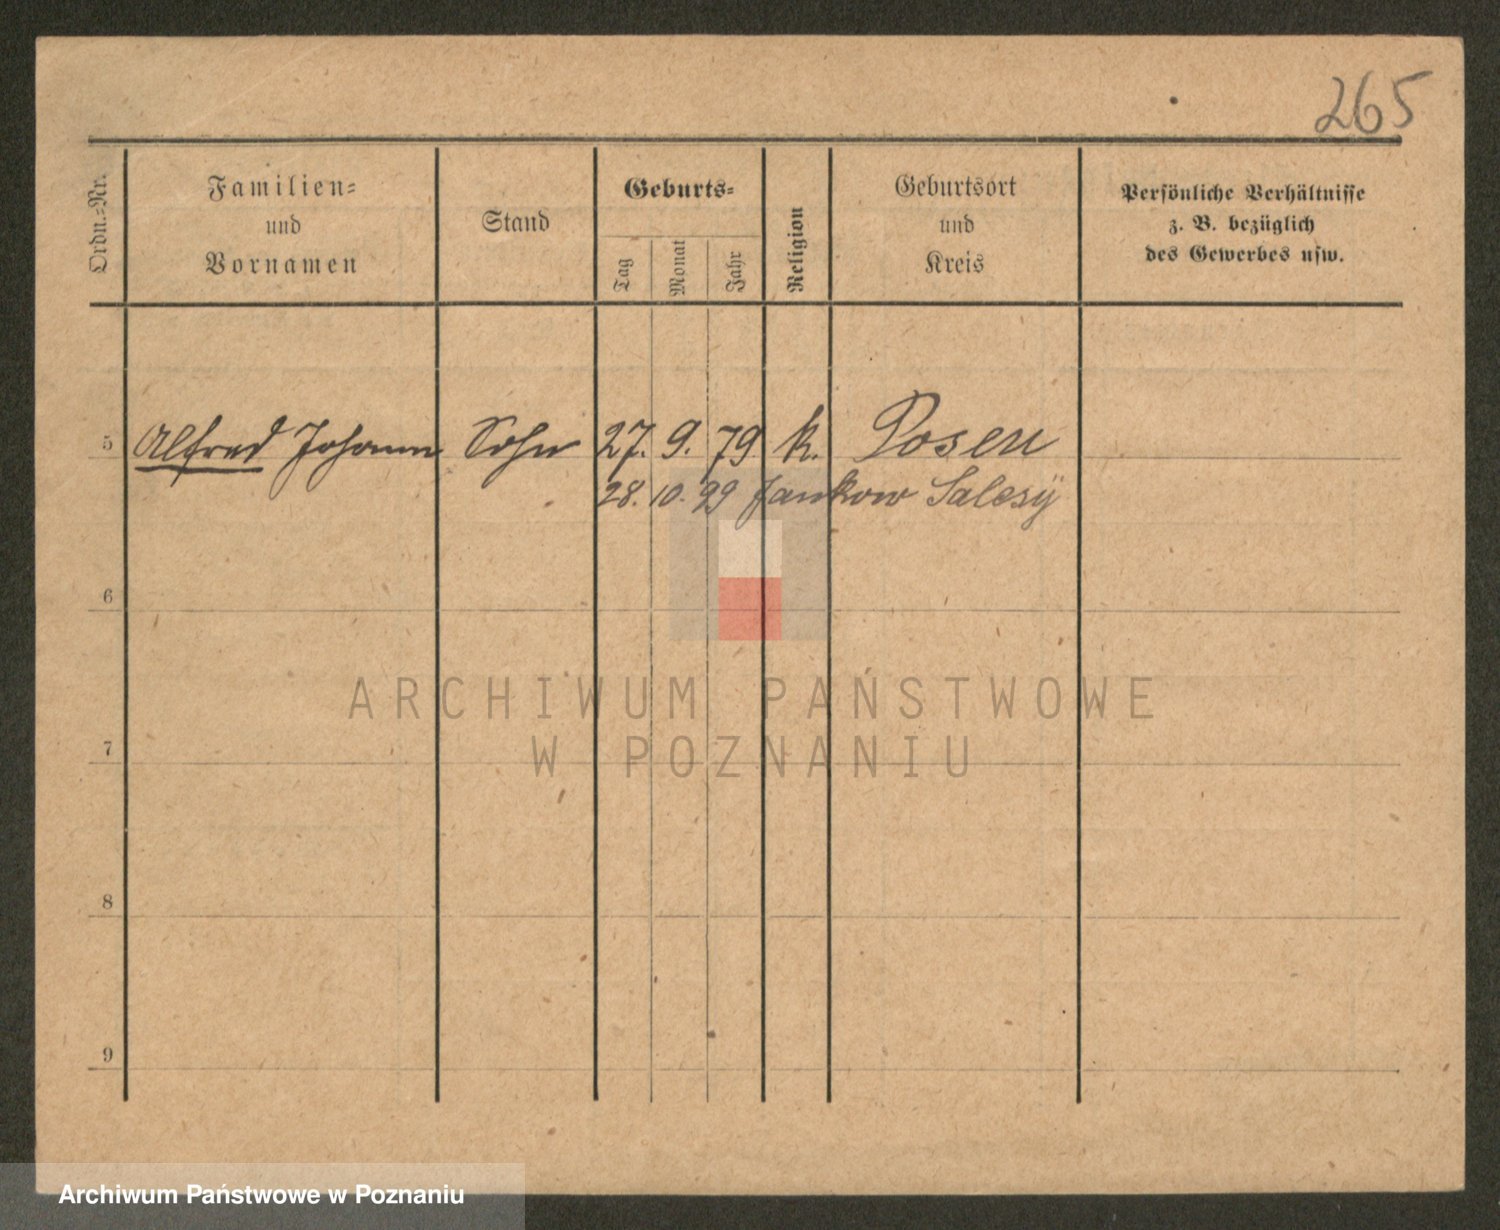 265
Ordn.-Nr.
Familien-
und
Vornamen
Stand
Geburts-
Tag
Monat
Jahr
Religion
Geburtsort
und
Kreis
Persönliche Verhältnisse
z. B. bezüglich
des Gewerbes usw.
5 Alfred Johann Sohn 27. 9. 79 k. Posen
28. 10. 99 Jankow Salesÿ
6
ARCHIWUM PAŃSTWOWE
W POZNANIU
7
8
9
Archiwum Państwowe w Poznaniu